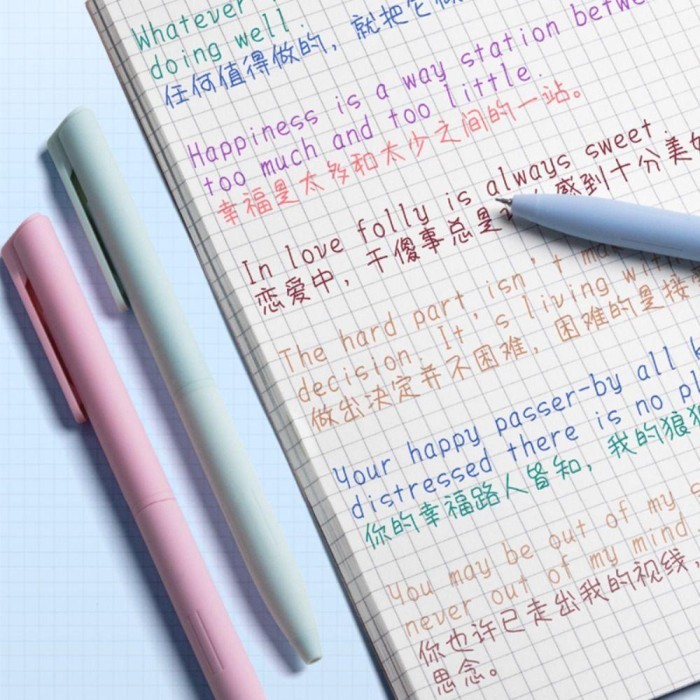 Whatever
doing well.
任何值得做的，就把它做
Happiness is a way station between
too much and too little.
幸福是太多和太少之间的一站。
In love folly is always sweet.
恋爱中，干傻事总是 感到十分美
The hard part isn't
decision. It's living with
做出决定并不困难，困难的是接
Your happy passer-by all
distressed there is no
你的幸福路人皆知，我的狼
You may be out of my
never out of my mind
你也许已走出我的视线，
思念。